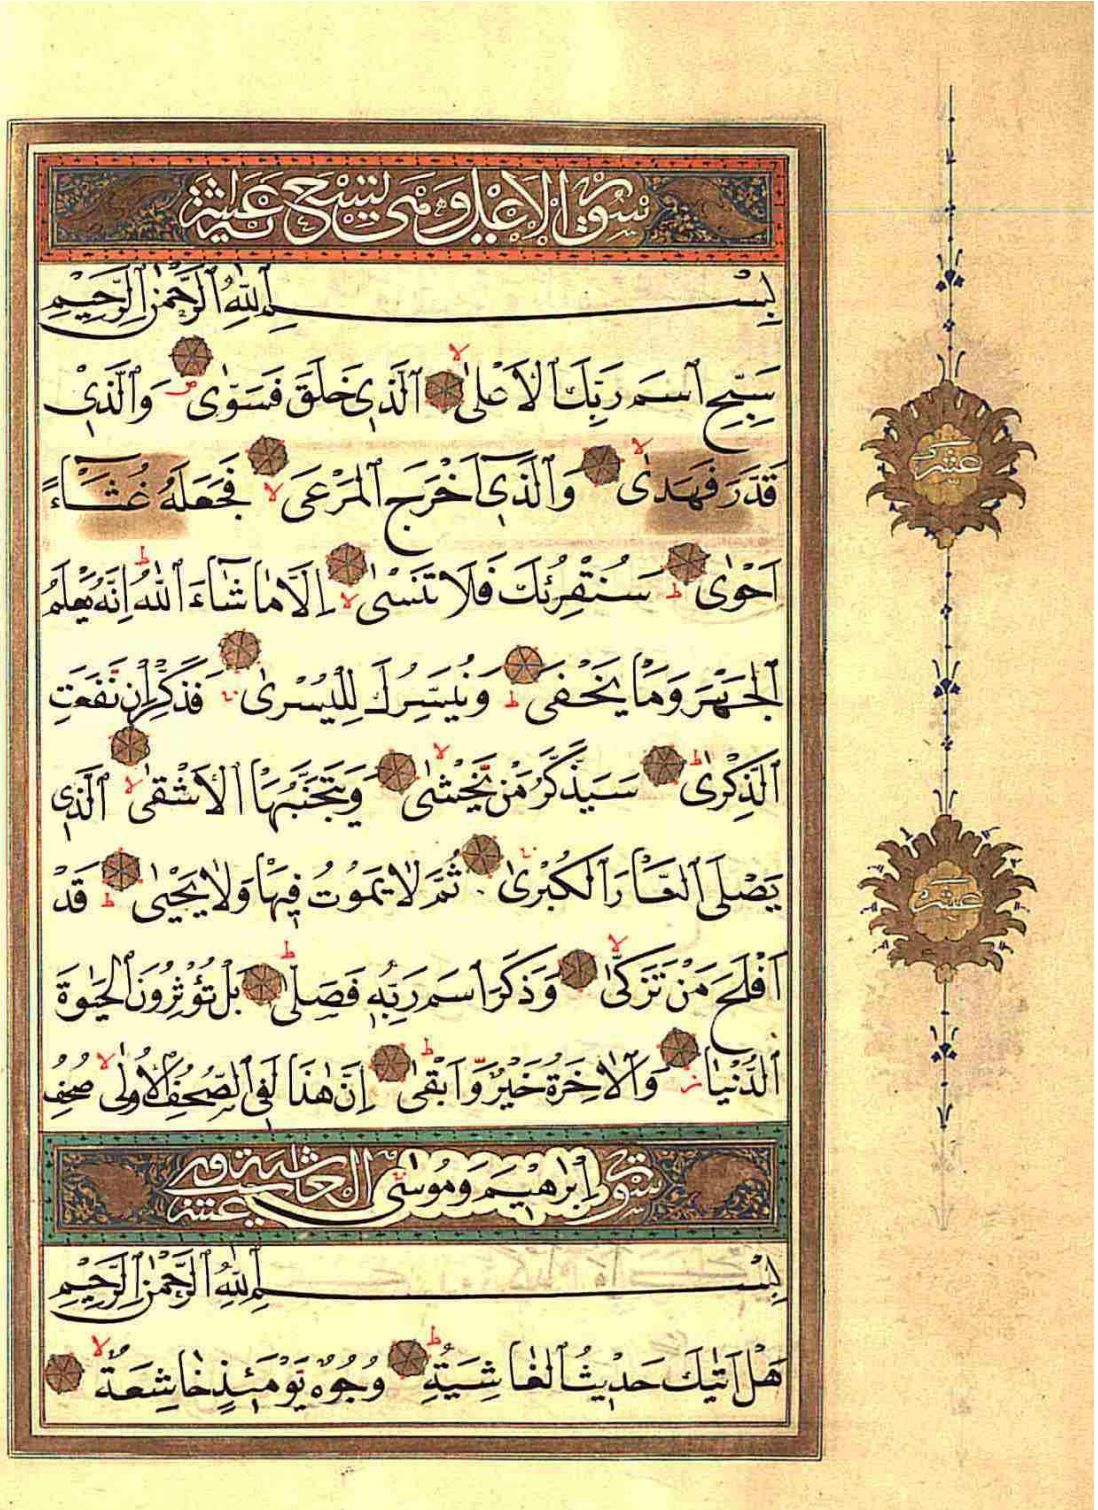 سورة الاعلى وهي تسع عشرة
بِسْمِ اللّٰهِ الرَّحْمٰنِ الرَّحِيْمِ
سَبِّحِ اسْمَ رَبِّكَ الْاَعْلٰى لا الَّذِيْ خَلَقَ فَسَوّٰى ص وَالَّذِيْ
قَدَّرَ فَهَدٰى لا وَالَّذِيْٓ اَخْرَجَ الْمَرْعٰى لا فَجَعَلَهُ غُثَآءً
اَحْوٰى ط سَنُقْرِئُكَ فَلَا تَنْسٰى لا اِلَّا مَا شَآءَ اللّٰهُ ط اِنَّهُ يَعْلَمُ
الْجَهْرَ وَمَا يَخْفٰى ط وَنُيَسِّرُكَ لِلْيُسْرٰى فَذَكِّرْ اِنْ نَّفَعَتِ
الذِّكْرٰى ط سَيَذَّكَّرُ مَنْ يَّخْشٰى لا وَيَتَجَنَّبُهَا الْاَشْقٰى لا الَّذِيْ
يَصْلَى النَّارَ الْكُبْرٰى ثُمَّ لَا يَمُوْتُ فِيْهَا وَلَا يَحْيٰى ط قَدْ
اَفْلَحَ مَنْ تَزَكّٰى لا وَذَكَرَ اسْمَ رَبِّهٖ فَصَلّٰى ط بَلْ تُؤْثِرُوْنَ الْحَيٰوةَ
الدُّنْيَا ز وَالْاٰخِرَةُ خَيْرٌ وَّاَبْقٰى ط اِنَّ هٰذَا لَفِي الصُّحُفِ الْاُوْلٰى لا صُحُفِ
سورة اِبْرٰهِيْمَ وَمُوْسٰى الغاشية عشر
بِسْمِ اللّٰهِ الرَّحْمٰنِ الرَّحِيْمِ
هَلْ اَتٰيكَ حَدِيْثُ الْغَاشِيَةِ ط وُجُوْهٌ يَّوْمَئِذٍ خَاشِعَةٌ لا
عشر
عشر